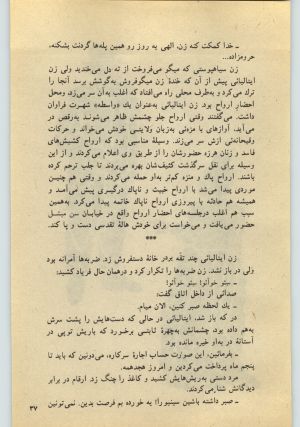 ـ خدا کمکت کنه زن، الهی به روز رو همین پله‌ها گردنت بشکنه،
حرومزاده...
زن سیاهپوستی که میگو می‌فروخت از ته دل می‌خندید ولی زن
ایتالیائی پیش از آن که خندهٔ زن میگوفروش به‌گوشش برسد آنجا را
ترك می‌کرد و به‌طرف محلی راه می‌افتاد که اغلب به‌آن سر می‌زد، ومحل
احضار ارواح بود. زن ایتالیائی به‌عنوان یك «واسطه» شهرت فراوان
داشت. می‌گفتند وقتی ارواح جلو چشمش ظاهر می‌شوند به‌رقص در
می‌آید، آوازهای با مزه‌ئی به‌زبان ولاینی خودش می‌خواند و حرکات
وقیحانه‌ئی ازش سر می‌زند. وسیلهٔ مناسبی بود که ارواح کشیش‌های
فاسد و زنان هرزه حضورشان را از طریق وی اعلام می‌کردند و از این
وسیله برای نقل سرگذشت کثیف‌شان بهره می‌بردند تا جلب ترحم کرده
باشند. ارواح پاك و منزه کم‌تر به‌او حمله می‌کردند و وقتی هم چنین
موردی پیدا می‌شد با ارواح خبیث و ناپاك درگیری پیش می‌آمد و
همیشه هم حادثه با پیروزی ارواح ناپاك خاتمه پیدا می‌کرد. به‌همین
سبب هم اغلب درجلسه‌های احضار ارواح واقع در خیابان سن میشل
حضور می‌یافت و می‌خواست برای خودش هالهٔ تقدسی دست و پا کند.
***
زن ایتالیائی چند تقّه بردر خانهٔ دستفروش زد. ضربه‌ها آمرانه بود
ولی در باز نشد. زن ضربه‌ها را تکرار کرد و درهمان حال فریاد کشید:
ـ سیئو خوآئو! سیئو خوآئو!
صدائی از داخل اتاق گفت:
ـ یك لحظه صبر کنین، الان میام.
در که باز شد، ایتالیائی در حالی که دست‌هایش را پشت سرش
به‌هم داده بود، چشمانش به‌چهرهٔ ثابتی برخورد که باریش توپی در
آستانهٔ در به‌او خیره مانده بود.
ـ بفرمائین، این صورت حساب اجارهٔ سرکاره، می‌دونین که باید تا
پنجم ماه پرداخت می‌کردین و امروز هجدهمه.
مرد دستی به‌ریش‌هایش کشید و کاغذ را چنگ زد. ارقام در برابر
دیدگانش شنا می‌کردند.
ـ صبر داشته باشین سینیورا! یه خورده بم فرصت بدین. نمی‌تونین
۳۷